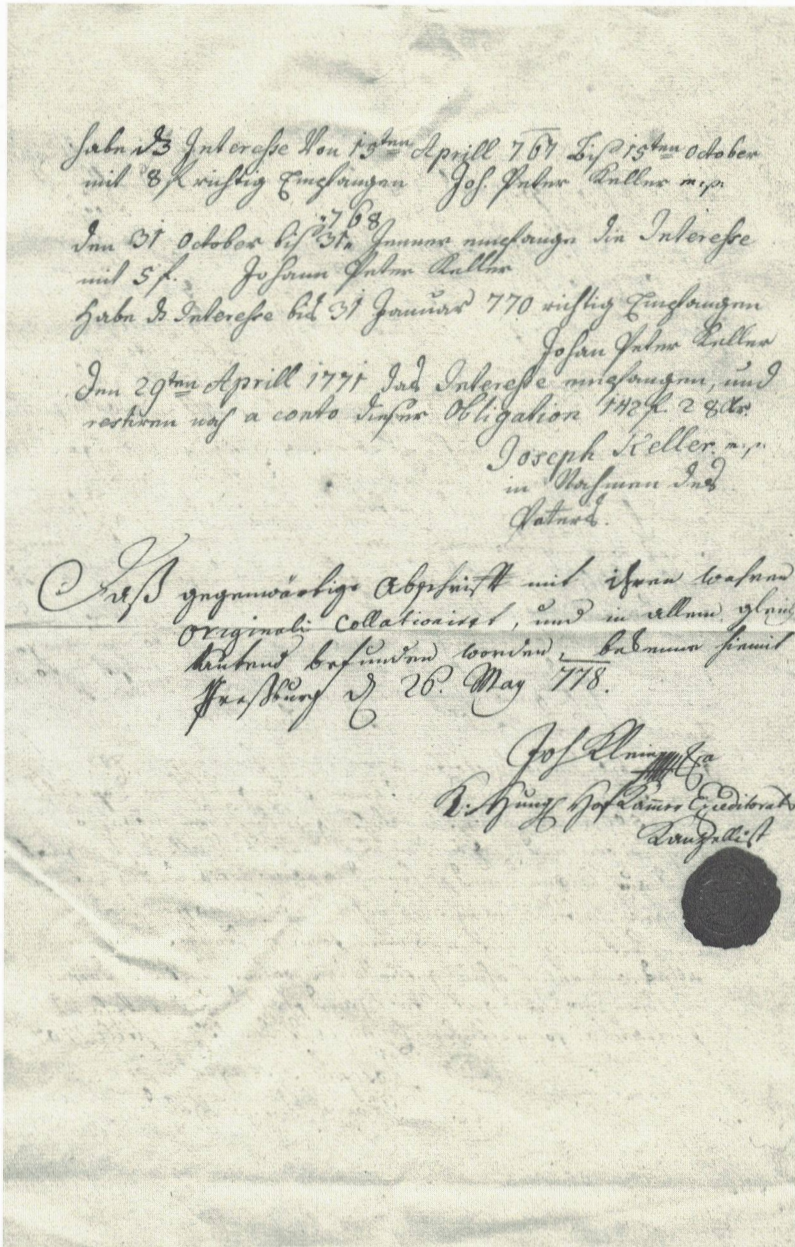 habe ds Interesse Von 15ten Aprill 767 Biß 15ten October
mit 8 f richtig Empfangen Joh. Peter Keller m.p.
den 31 October biß 31n Jenner 768 empfange die Interesse
mit 5 f. Johann Peter Keller
Habe ds Interesse bis 31 Januar 770 richtig Empfangen
Johan Peter Keller
den 29ten Aprill 1771 das Interesse empfangen, und
restiren noch a conto dieser Obligation 142 f. 28 kr.
Joseph Keller m.p.
in Nahmen des
Vaters.
Daß gegenwärtige Abschrifft mit ihren wahren
Originali Collationiret, und in allem gleich
lautend befunden worden, bekenne hiemit
Preßburg d 26. May 778.
Joh Klein
K. Hung. Hof Kammer Expeditorats
Kanzellist